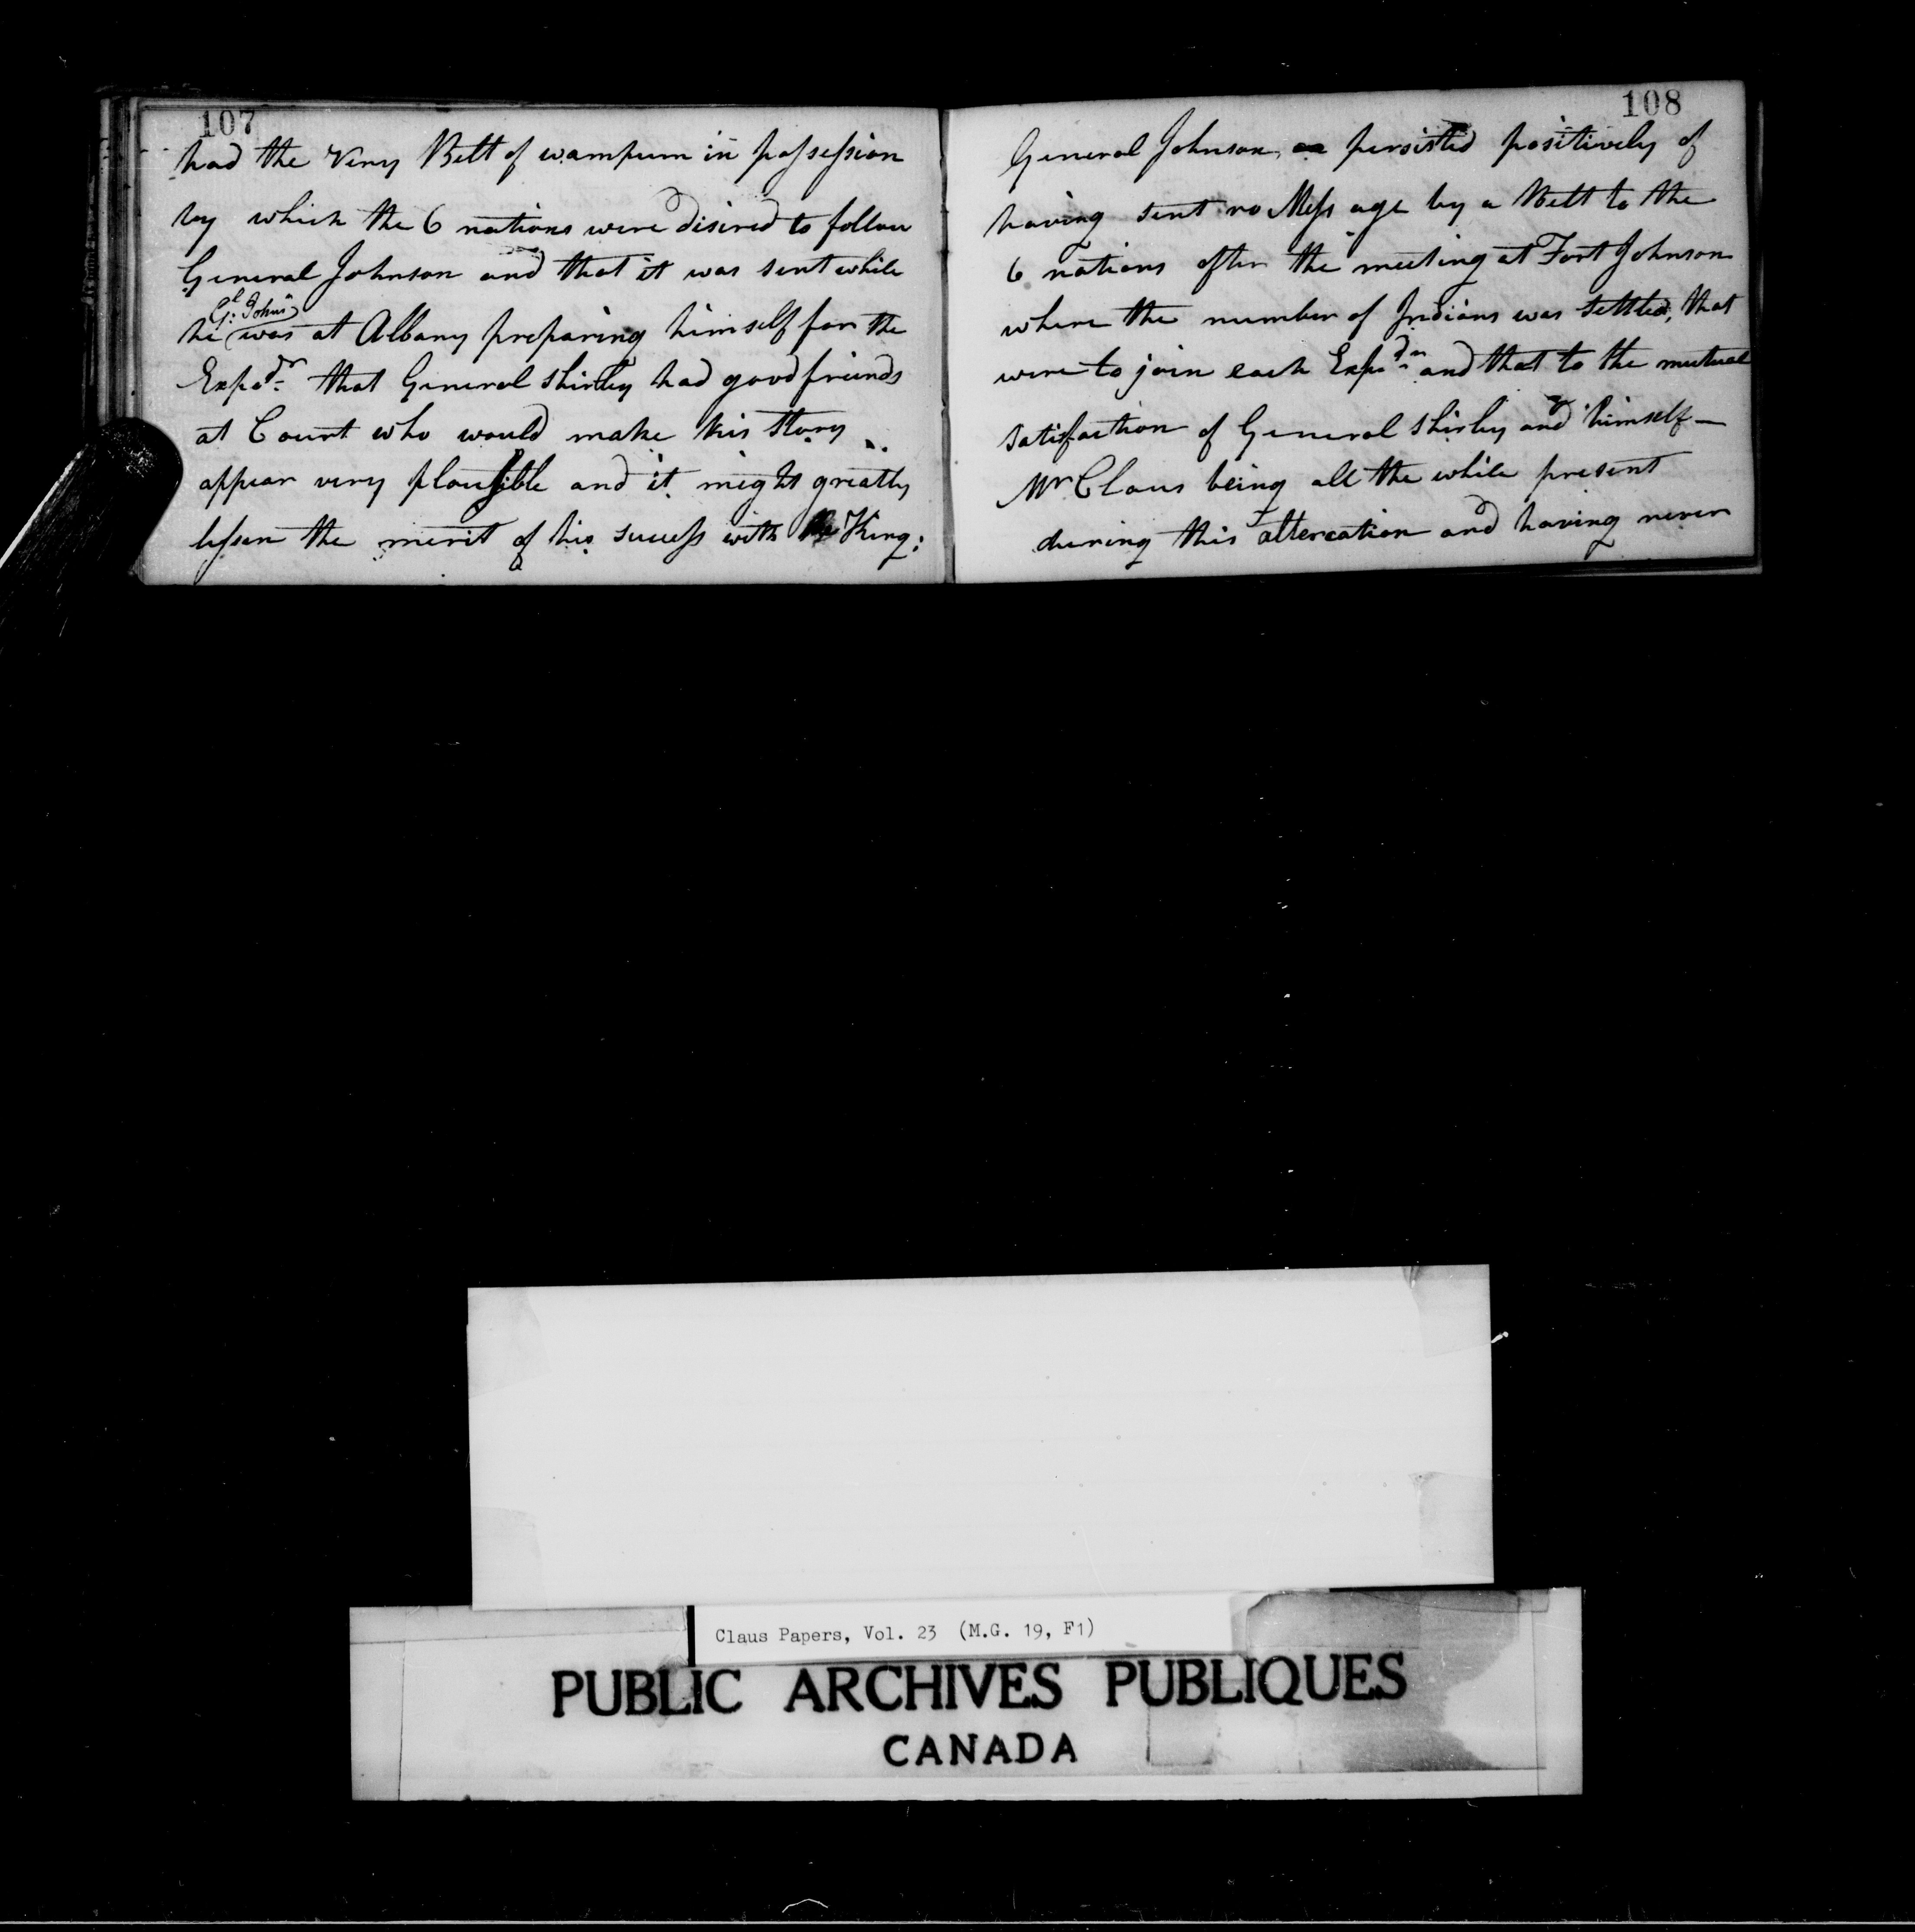 107
had the very Belt of wampum in possession
by which the 6 nations were disired to follow
General Johnson and that it was sent while
Gl: Johnn
he was at Albany preparing himself for the
Expedn: that General Shirley had good friends
at Court who would make his story
appear very plausible and it might greatly
lessen the merit of his success with the King:
108
General Johnson, persisted positively of
having sent no Message by a Belt to the
6 nations after the meeting at Fort Johnson
where the number of Indians was settled, that
were to join each Expedn and that to the mutual
satisfaction of General Shirley and himself —
Mr Claus being all the while present
during this altercation and having never
Claus Papers, Vol. 23 (M.G. 19, F1)
PUBLIC ARCHIVES PUBLIQUES
CANADA